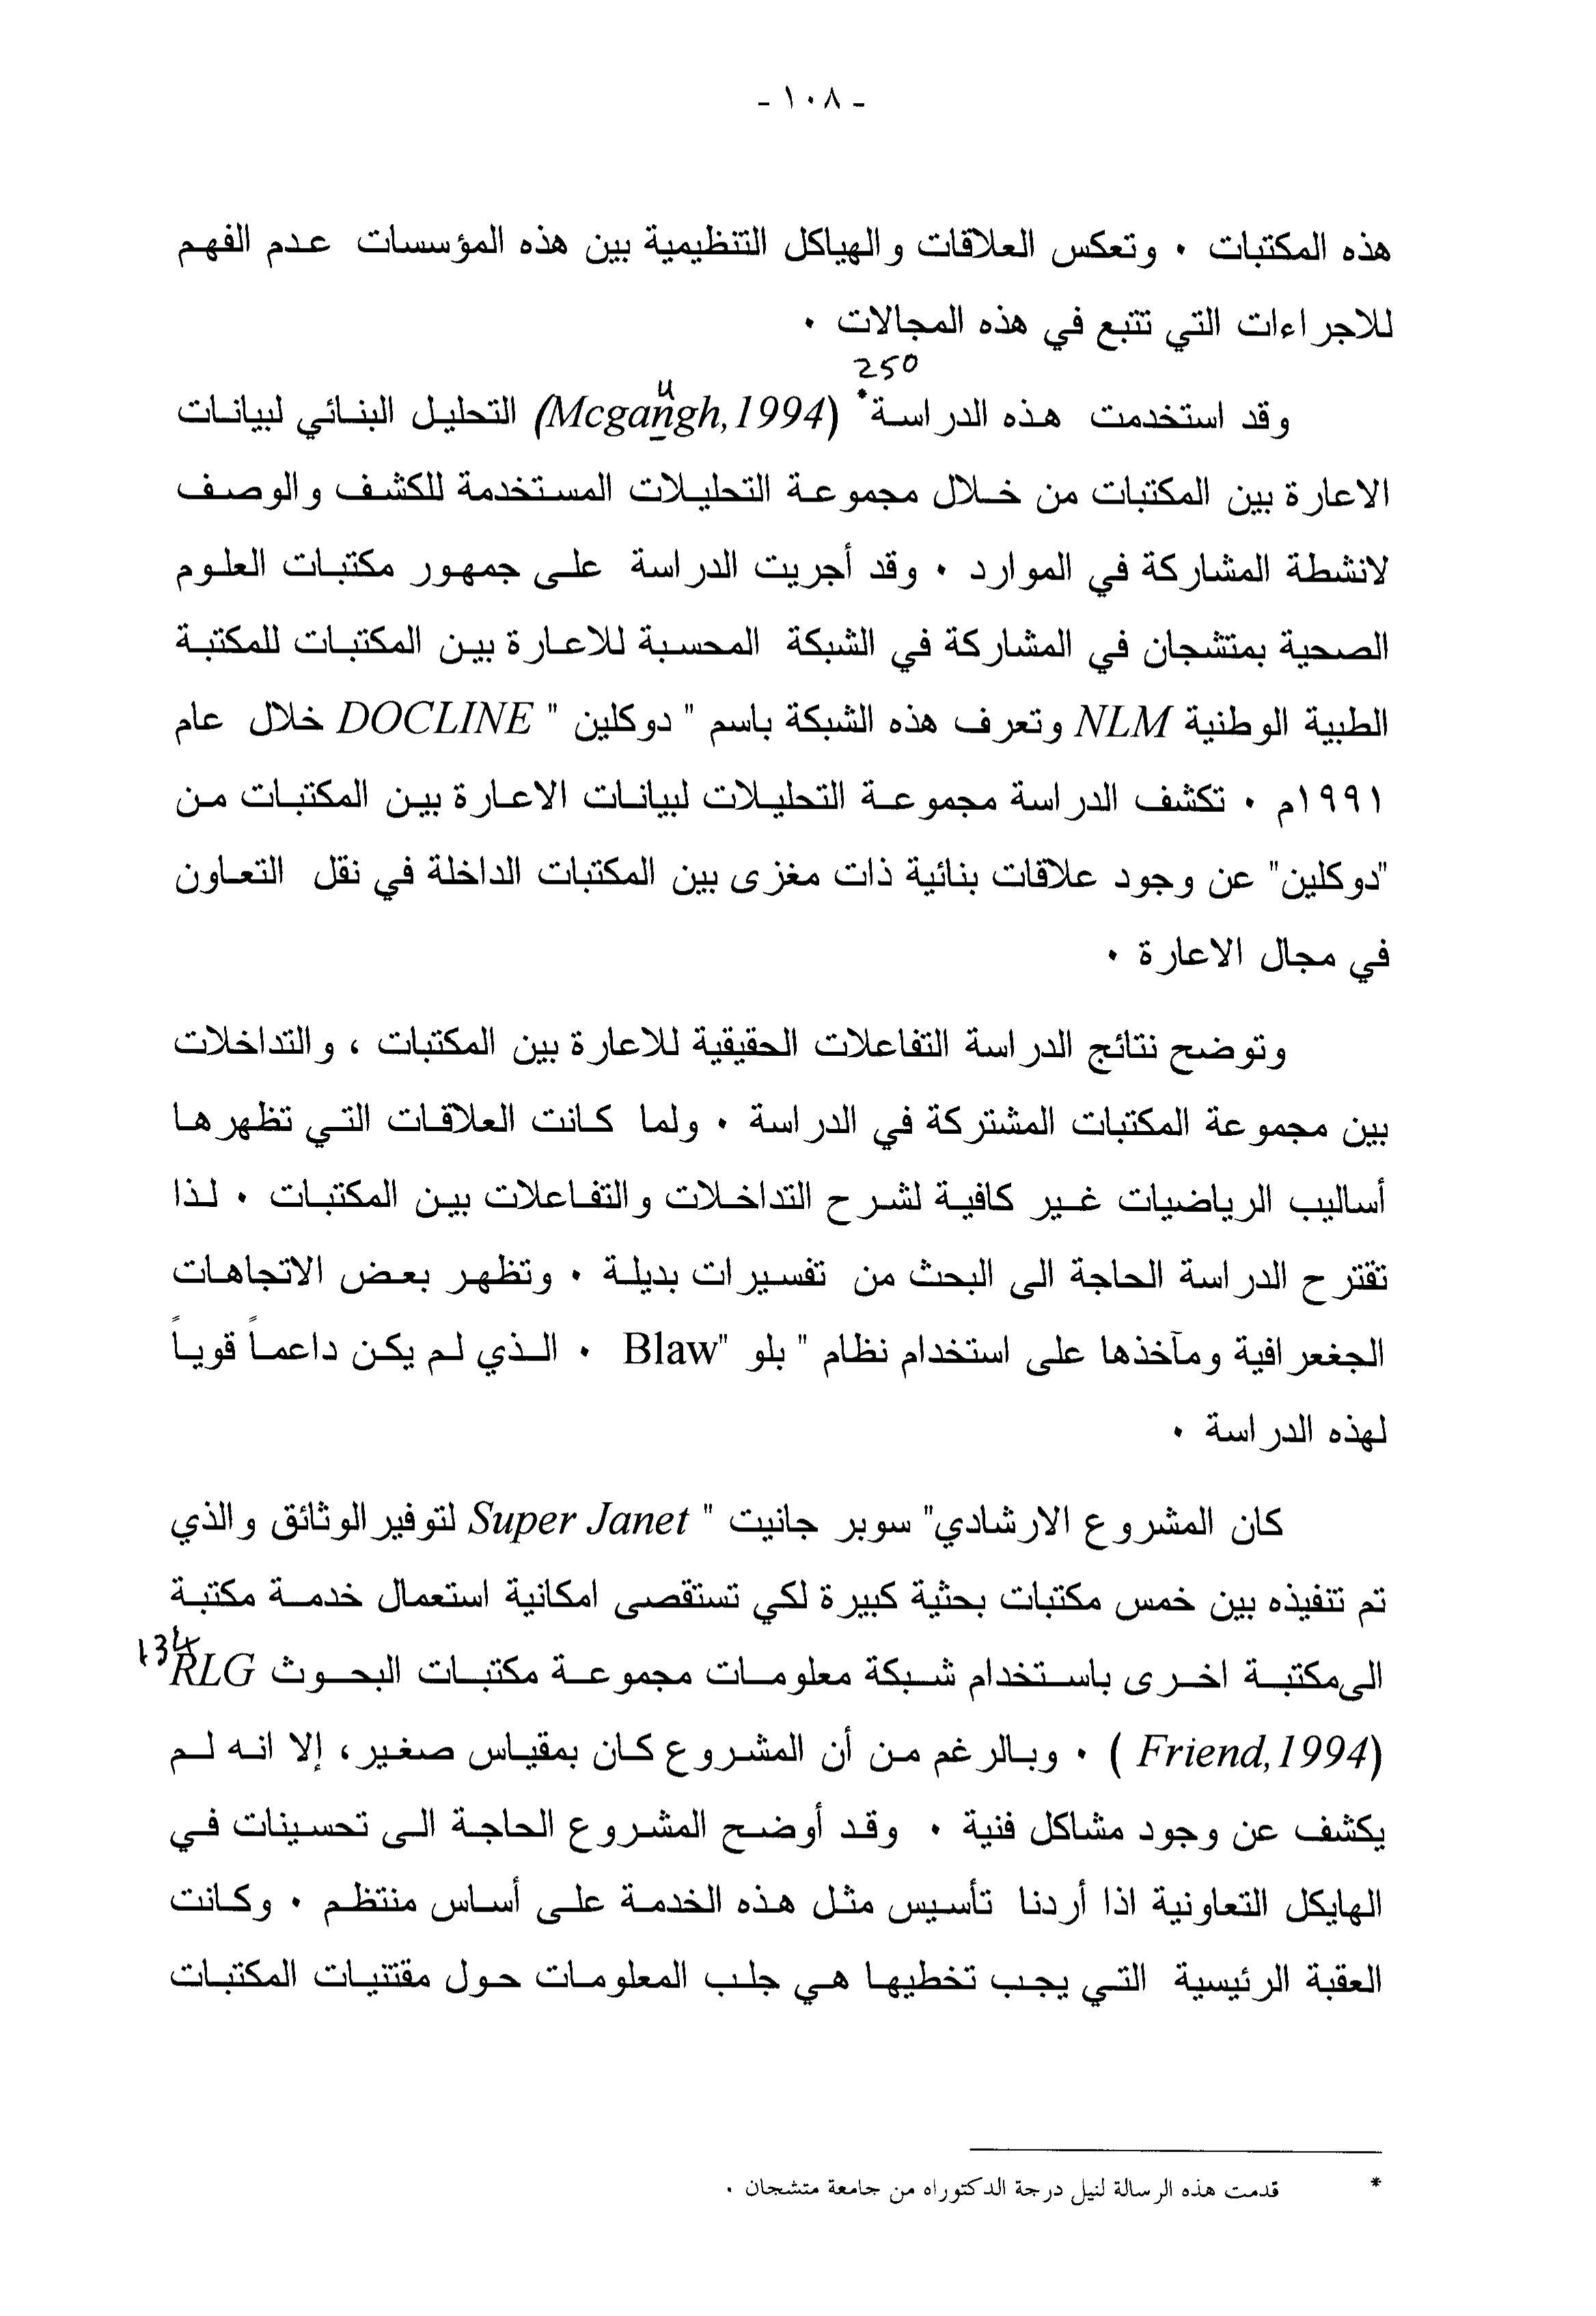 - ١٠٨ -
هذه المكتبات ٠ وتعكس العلاقات والهياكل التنظيمية بين هذه المؤسسات عدم الفهم
للاجراءات التي تتبع في هذه المجالات ٠
250
وقد استخدمت هذه الدراسة* (Mcgangh,1994) التحليل البنائي لبيانات
u
الاعارة بين المكتبات من خلال مجموعة التحليلات المستخدمة للكشف والوصف
لانشطة المشاركة في الموارد ٠ وقد أجريت الدراسة على جمهور مكتبات العلوم
الصحية بمتشجان في المشاركة في الشبكة المحسبة للاعارة بين المكتبات للمكتبة
الطبية الوطنية NLM وتعرف هذه الشبكة باسم " دوكلين " DOCLINE خلال عام
١٩٩١م ٠ تكشف الدراسة مجموعة التحليلات لبيانات الاعارة بين المكتبات من
"دوكلين" عن وجود علاقات بنائية ذات مغزى بين المكتبات الداخلة في نقل التعاون
في مجال الاعارة ٠
وتوضح نتائج الدراسة التفاعلات الحقيقية للاعارة بين المكتبات ، والتداخلات
بين مجموعة المكتبات المشتركة في الدراسة ٠ ولما كانت العلاقات التي تظهرها
أساليب الرياضيات غير كافية لشرح التداخلات والتفاعلات بين المكتبات ٠ لذا
تقترح الدراسة الحاجة الى البحث من تفسيرات بديلة ٠ وتظهر بعض الاتجاهات
الجغعرافية ومآخذها على استخدام نظام " بلو "Blaw ٠ الذي لم يكن داعماً قوياً
لهذه الدراسة ٠
كان المشروع الارشادي" سوبر جانيت " Super Janet لتوفير الوثائق والذي
تم تنفيذه بين خمس مكتبات بحثية كبيرة لكي تستقصى امكانية استعمال خدمة مكتبة
134
الى مكتبة اخرى باستخدام شبكة معلومات مجموعة مكتبات البحوث RLG
(Friend,1994 ) ٠ وبالرغم من أن المشروع كان بمقياس صغير، إلا انه لم
يكشف عن وجود مشاكل فنية ٠ وقد أوضح المشروع الحاجة الى تحسينات في
الهايكل التعاونية اذا أردنا تأسيس مثل هذه الخدمة على أساس منتظم ٠ وكانت
العقبة الرئيسية التي يجب تخطيها هي جلب المعلومات حول مقتنيات المكتبات
* قدمت هذه الرسالة لنيل درجة الدكتوراه من جامعة متشجان ٠